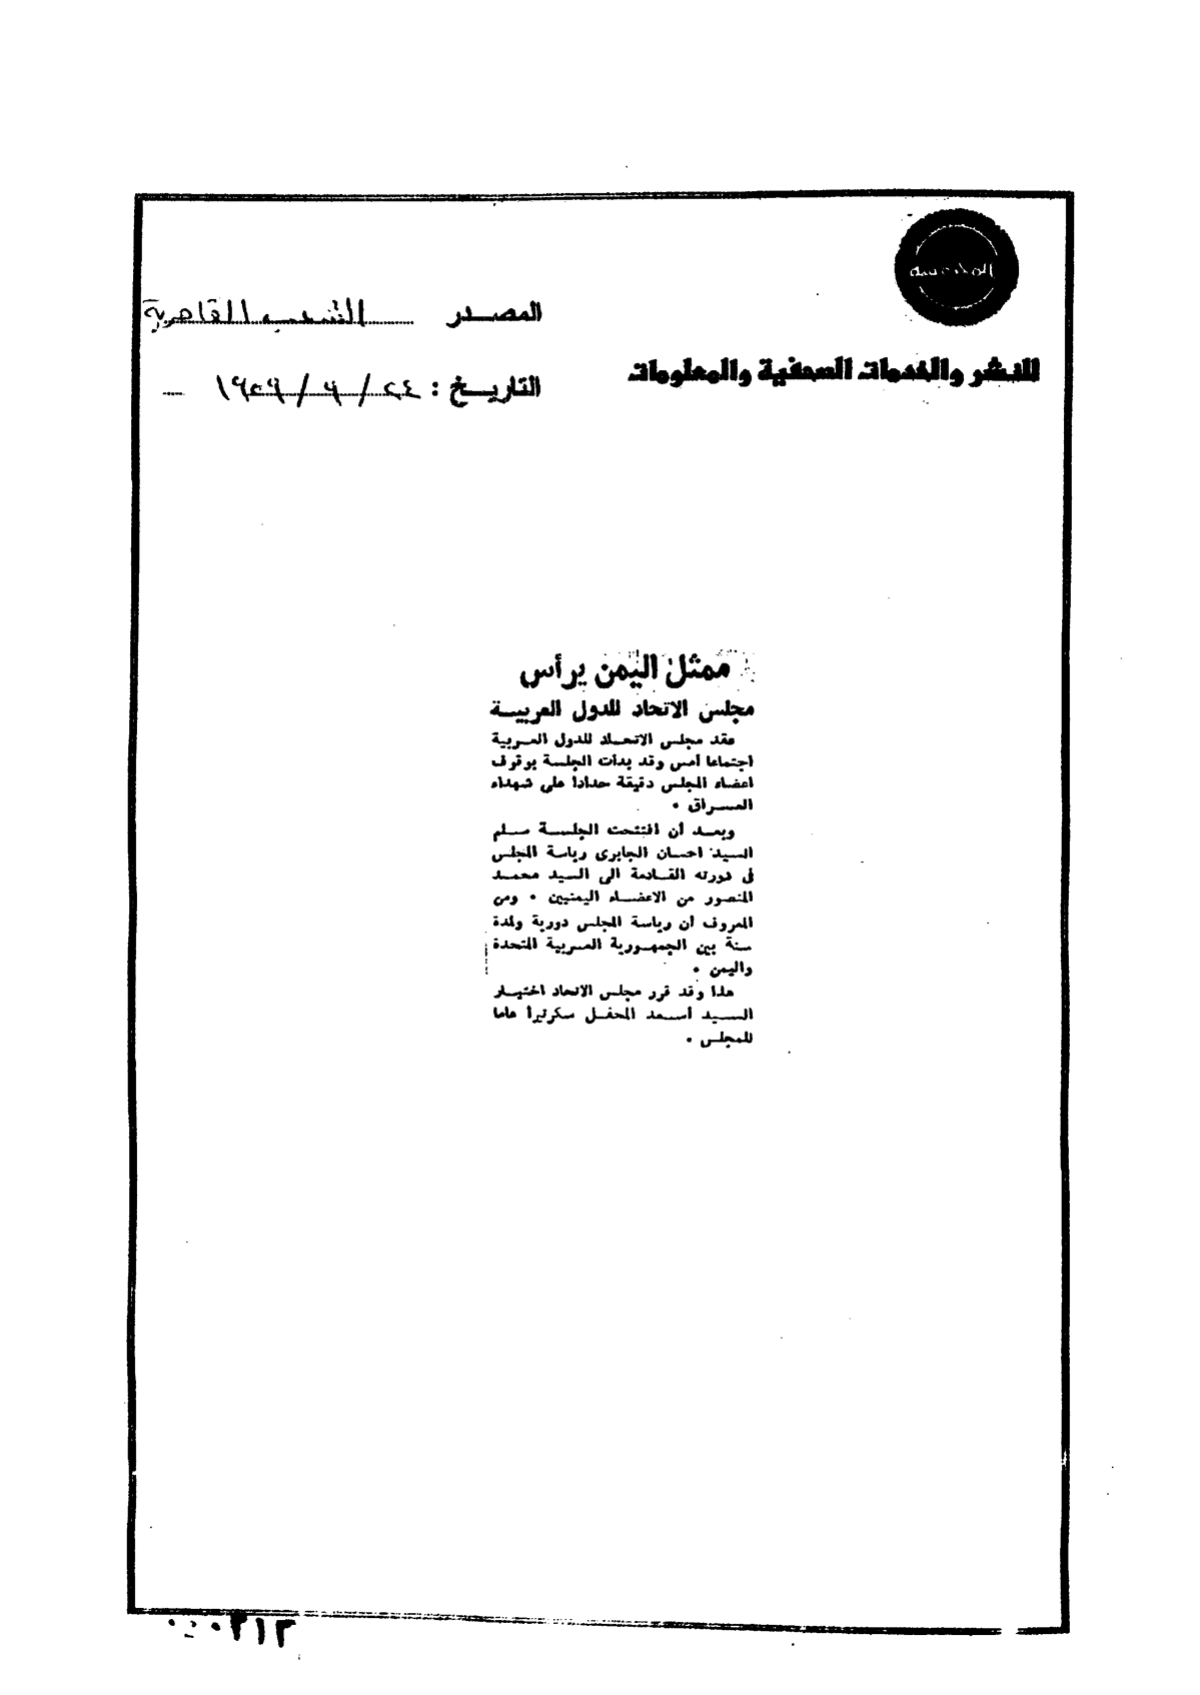 المصـــدر الشعب القاهرية
للنشر والخدمات الصحفية والمعلومات
التاريـــخ : ٢٤ / ٩ / ١٩٥٩
ممثل اليمن يرأس
مجلس الاتحاد للدول العربيـة
عقد مجلس الاتحـاد للدول العـربية
اجتماعا أمس وقد بدأت الجلسة بوقوف
أعضاء المجلس دقيقة حدادا على شهداء
العـــراق .
وبعـد أن افتتحت الجلسـة سـلم
السيد احسان الجابرى رياسة المجلس
فى دورته القـادمة الى السيد محمـد
المنصور من الاعضـاء اليمنيين . ومن
المعروف أن رياسة المجلس دورية ولمدة
سنة بين الجمهـورية العـربية المتحدة
واليمن .
هذا وقد قرر مجلس الاتحاد اختيـار
السـيد أسـعد المحفـل سكرتيرا عاما
للمجلس .